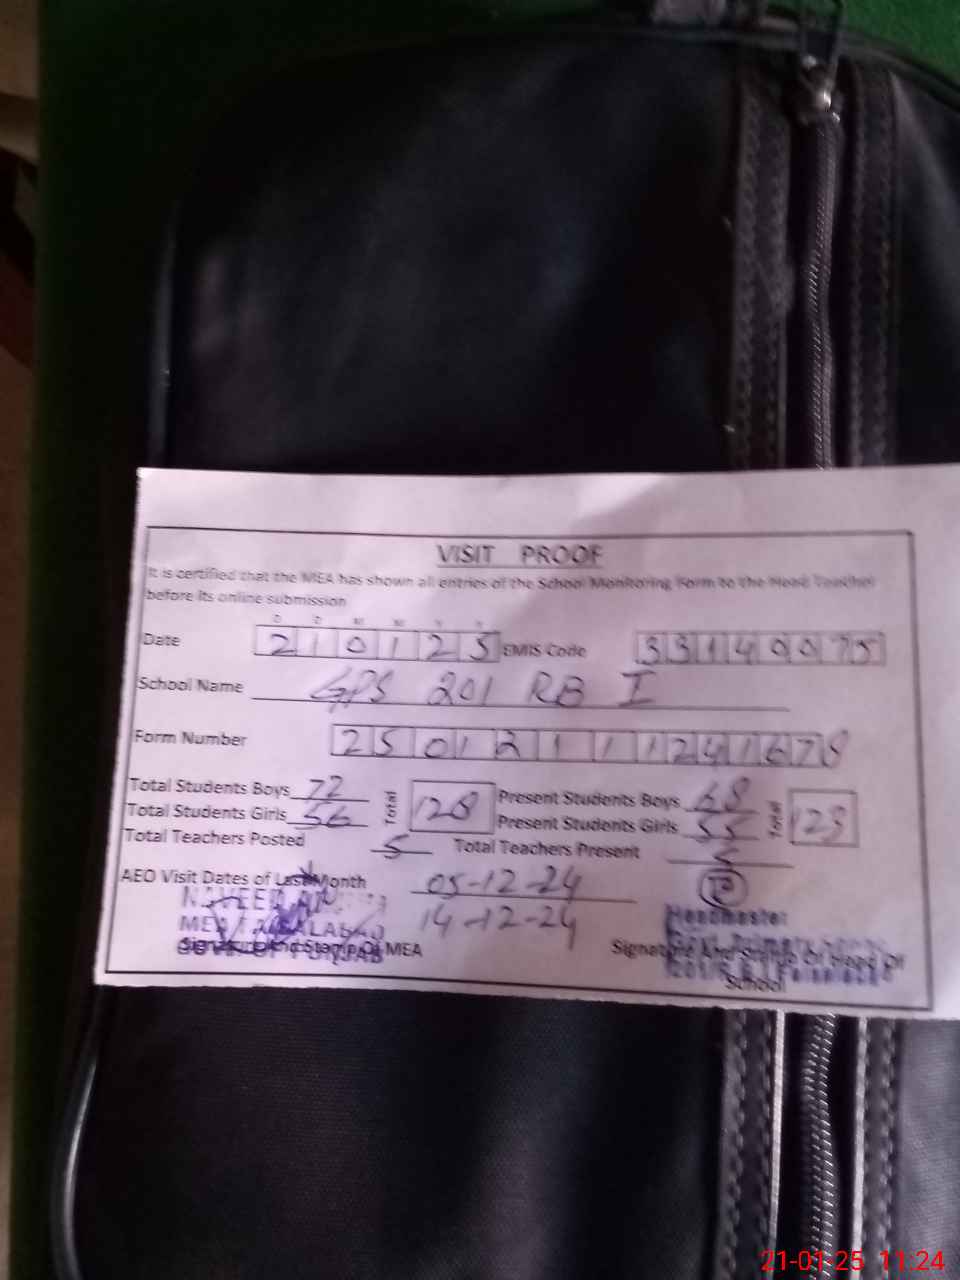 VISIT PROOF
It is certified that the MEA has shown all entries of the School Monitoring Form to the Head Teacher
before its online submission
D D M M Y Y
Date 210125 EMIS Code 33140075
School Name GPS 201 RB I
Form Number 25012111241678
Total Students Boys 72 Total 128 Present Students Boys 68 Total 123
Total Students Girls 56 Present Students Girls 55
Total Teachers Posted 5 Total Teachers Present 5
AEO Visit Dates of Last Month 05-12-24
14-12-24
NAVEED
MEA
Signature And Stamp Of MEA
Headmaster
Signature And Stamp Of Head Of
School
21-01-25 11:24